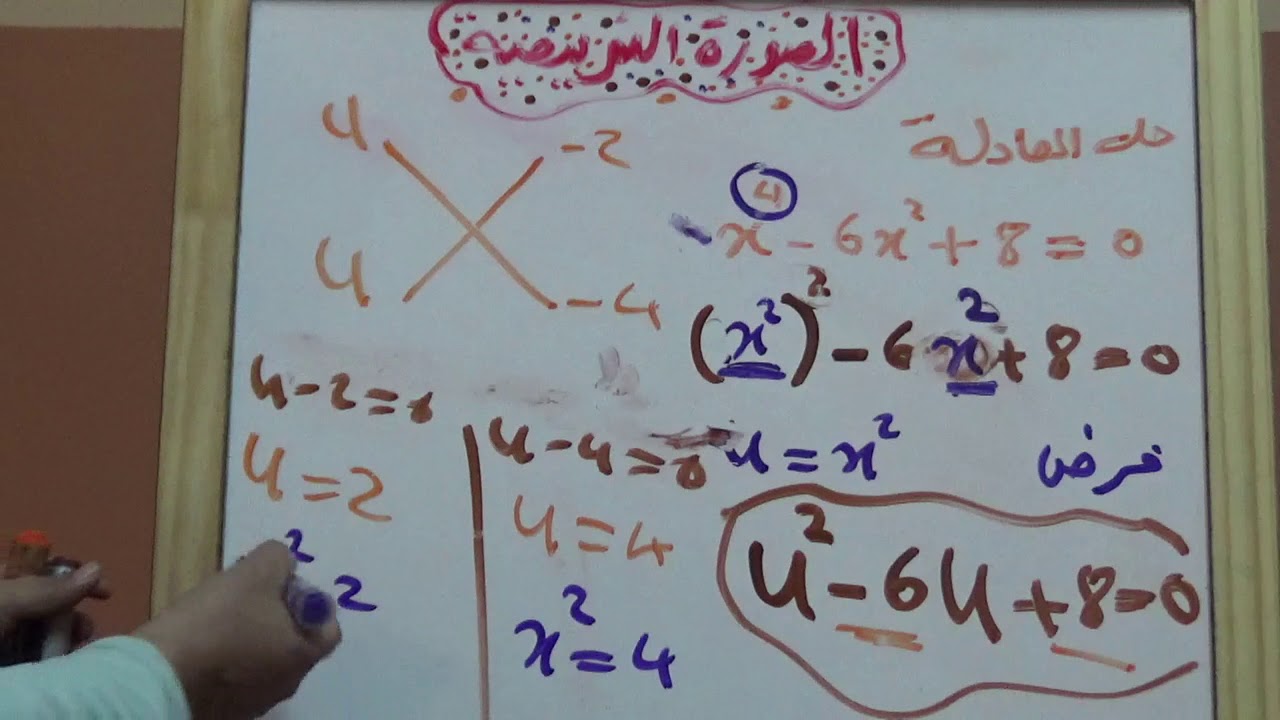 الصورة التربيعية
حل المعادلة
x⁴ - 6x² + 8 = 0
(x²)² - 6x² + 8 = 0
فرض
u = x²
u² - 6u + 8 = 0
u -2
u -4
u - 2 = 0
u = 2
2 2
u - 4 = 0
u = 4
x² = 4